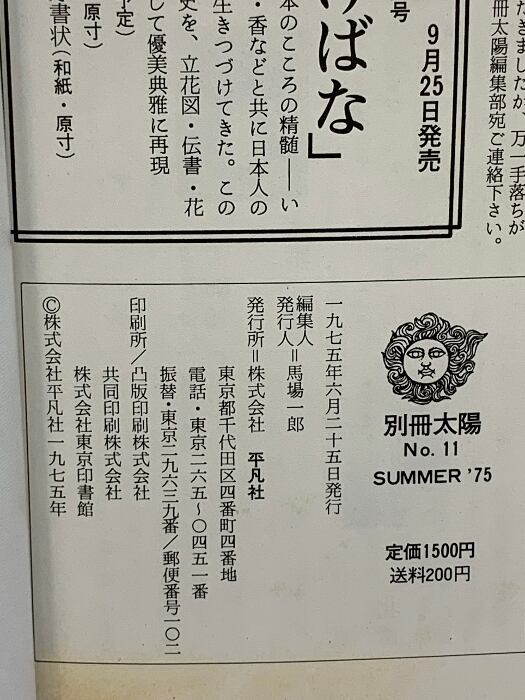 たきましたが、万一手落ちが
冊太陽編集部宛ご連絡下さい。
号
9月25日発売
けばな」
本のこころの精髄——い
・香などと共に日本人の
生きつづけてきた。この
史を、立花図・伝書・花
して優美典雅に再現
予定)
原寸)
書状(和紙・原寸)
別冊太陽
No. 11
SUMMER '75
定価1500円
送料200円
一九七五年六月二十五日発行
編集人
発行人=馬場一郎
発行所=株式会社 平凡社
東京都千代田区四番町四番地
電話・東京二六五〜〇四五一番
振替・東京二九六三九番/郵便番号一〇二
印刷所/凸版印刷株式会社
共同印刷株式会社
株式会社東京印書館
©株式会社平凡社一九七五年